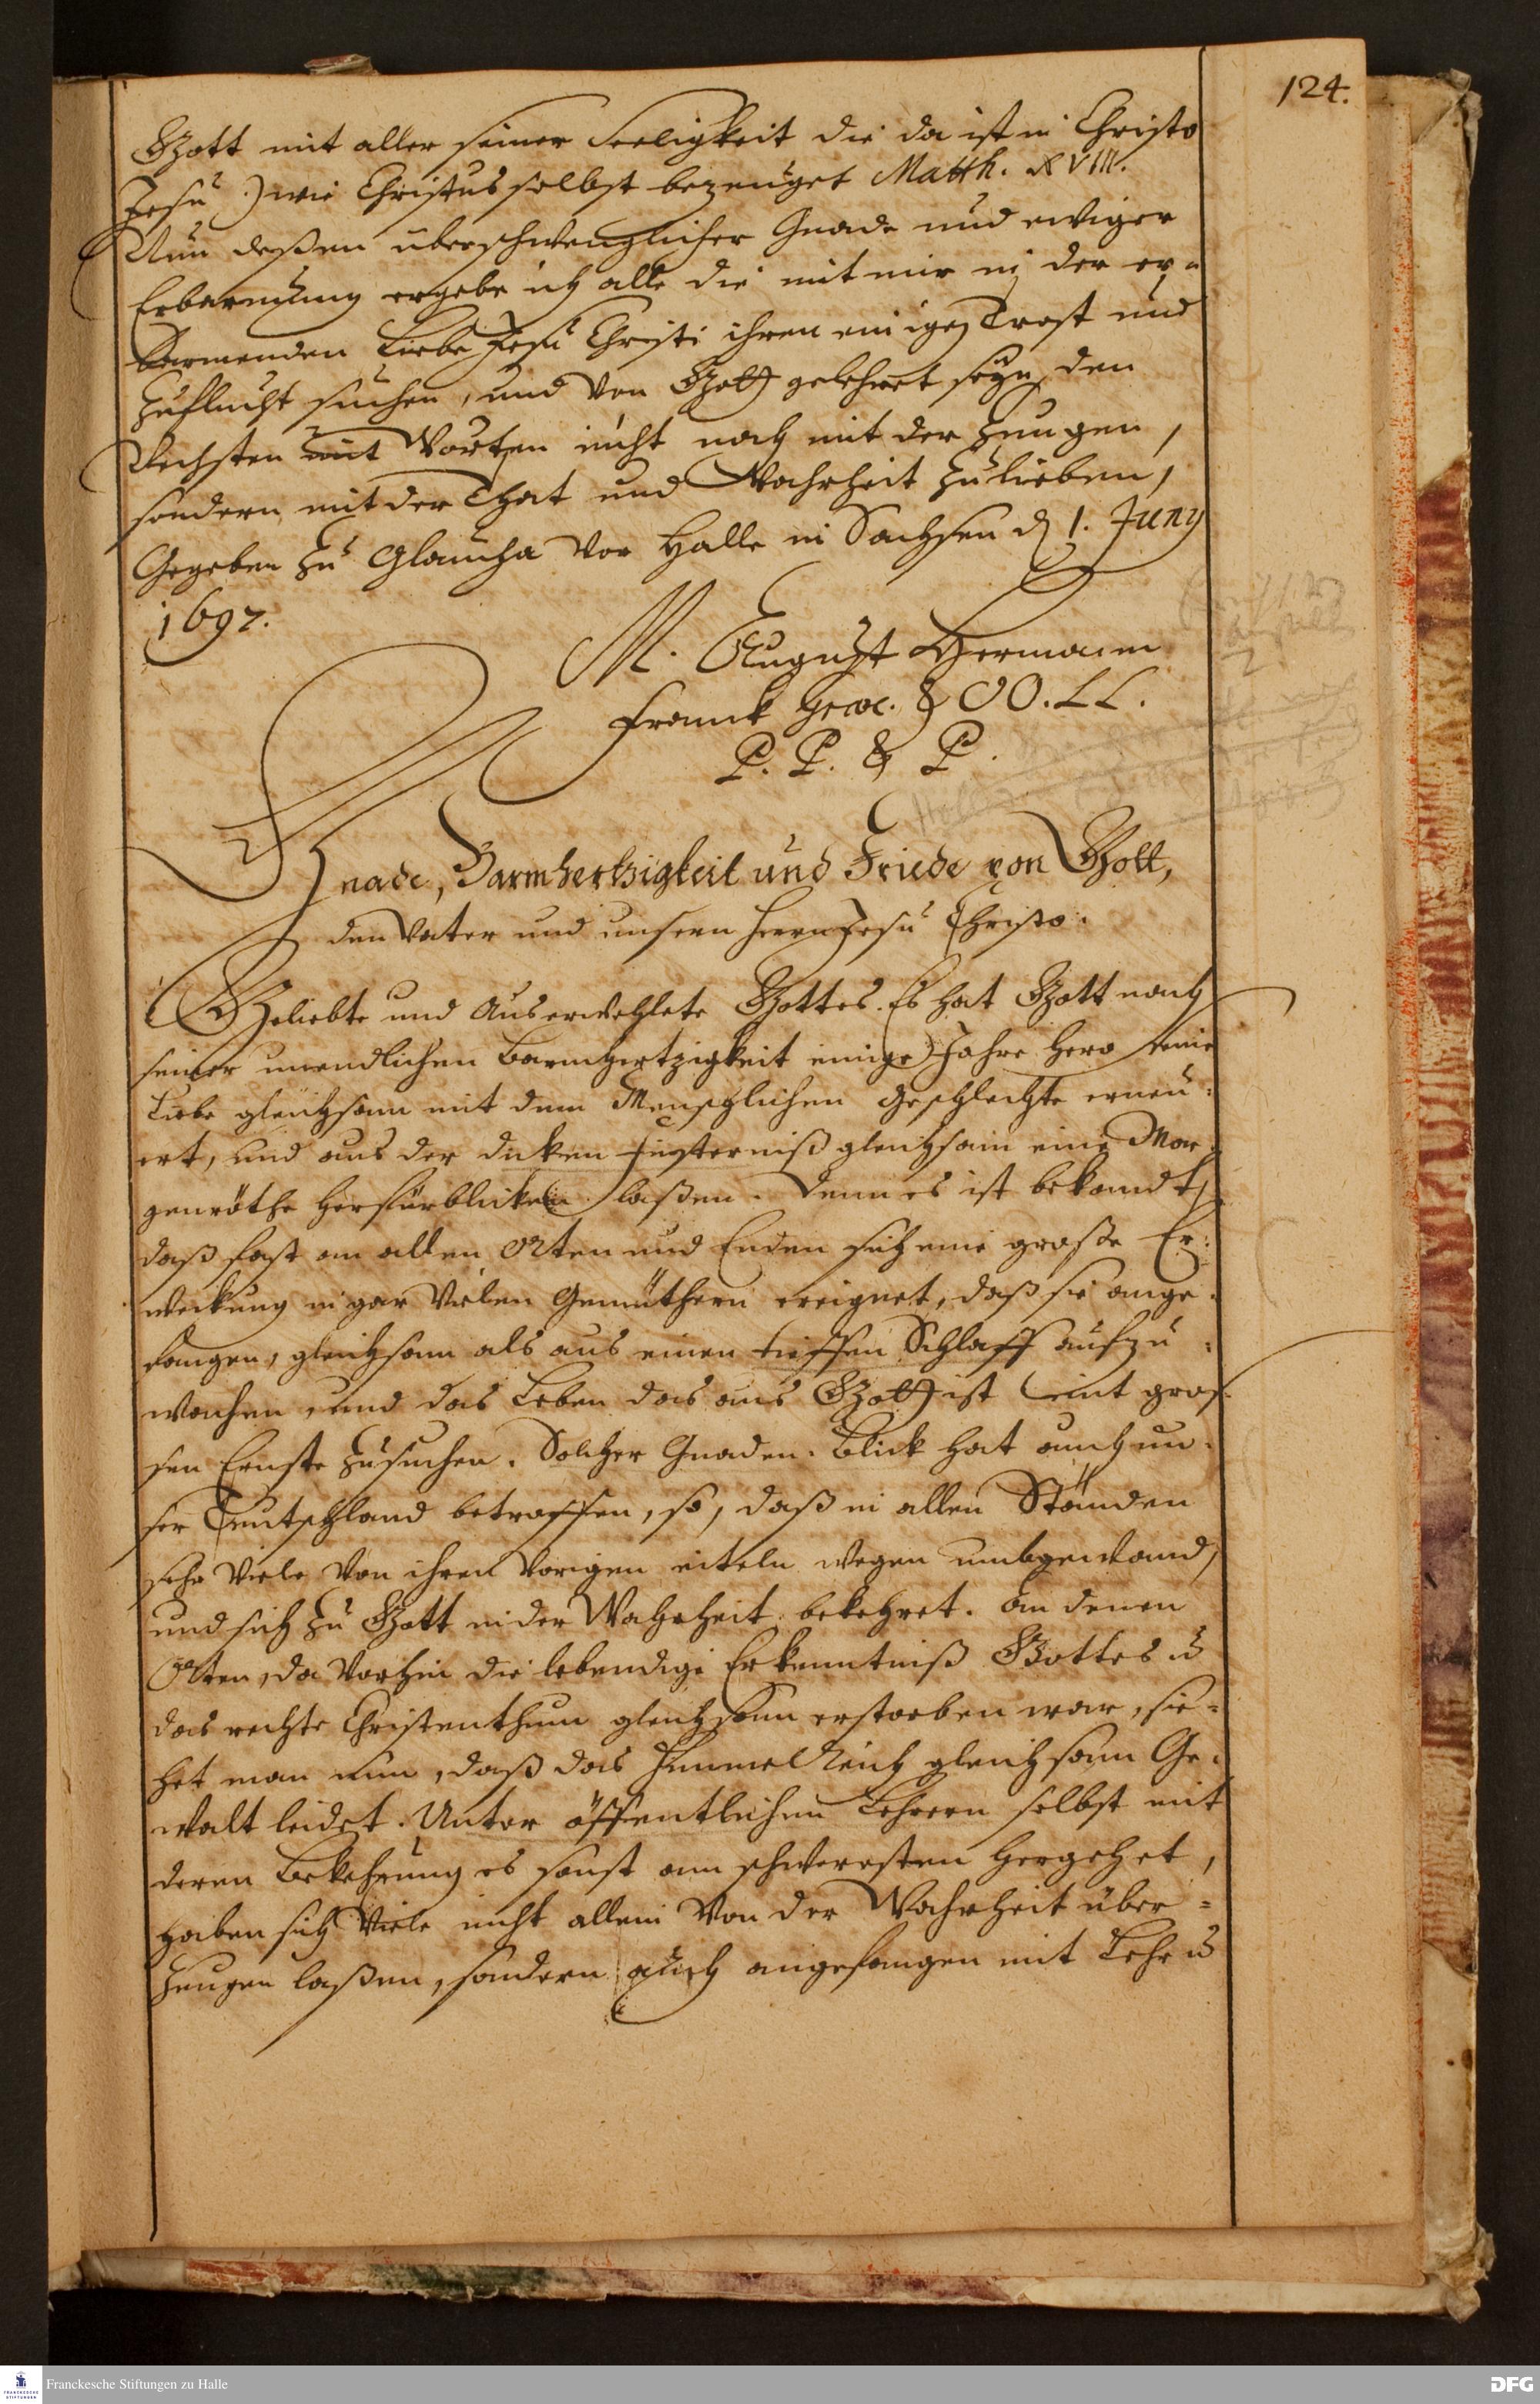 124.
Gott mit aller seiner Seeligkeit die da ist in Christo
Jesu :) wie Christus selbst bezeuget Matth. XVIII.
Nun deßen überschwenglicher Gnade und ewiger
Erbarmung ergebe ich alle die mit mir in der er-
barmenden Liebe Jesu Christi ihren einigen Trost und
Zuflucht suchen, und von Gott gelehret seyn, den
Nechsten mit Worten nicht noch mit der Zungen,
sondern mit der That und Wahrheit zu lieben,
Gegeben zu Glaucha vor Halle in Sachsen d. 1. Juny
1697.
M. August Hermann
Franck Graec. & OO. LL.
P. P. & P.
Gnade, Barmhertzigkeit und Friede von Gott,
den Vater und unsern Herrn Jesu Christo.
Geliebte und Auserwehlete Gottes. Es hat Gott nach
seiner unendlichen Barmhertzigkeit einige Jahre hero seine
Liebe gleichsam mit dem Menschlichen Geschlechte erneu-
ert, und aus der dicken Finsterniß gleichsam eine Mor-
genröthe herfürblicken laßen. Denn es ist bekandt,
daß fast an allen Orten und Enden sich eine große Er-
weckung in gar vielen Gemüthern ereignet, daß sie ange-
fangen, gleichsam als aus einen tieffen Schlaff aufzu-
wachen, und das Leben das aus Gott ist mit gros-
sen Ernste zu suchen. Solcher Gnaden-Blick hat auch un-
ser Teutschland betroffen, so, daß in allen Ständen
sehr viele von ihren vorigen eiteln wegen umbgewand,
und sich zu Gott in der Wahrheit bekehret. An denen
Orten, da vorhin die lebendige Erkenntniß Gottes u.
das rechte Christenthum gleichsam erstorben war, sie-
het man nun, daß das Himmel Reich gleichsam Ge-
walt leidet. Unter öffentlichen Lehrern selbst mit
deren Bekehrung es sonst am schwersten hergehet,
haben sich viele nicht allein von der Wahrheit über-
zeugen laßen, sondern auch angefangen mit Lehr u.
Franckesche Stiftungen zu Halle
DFG